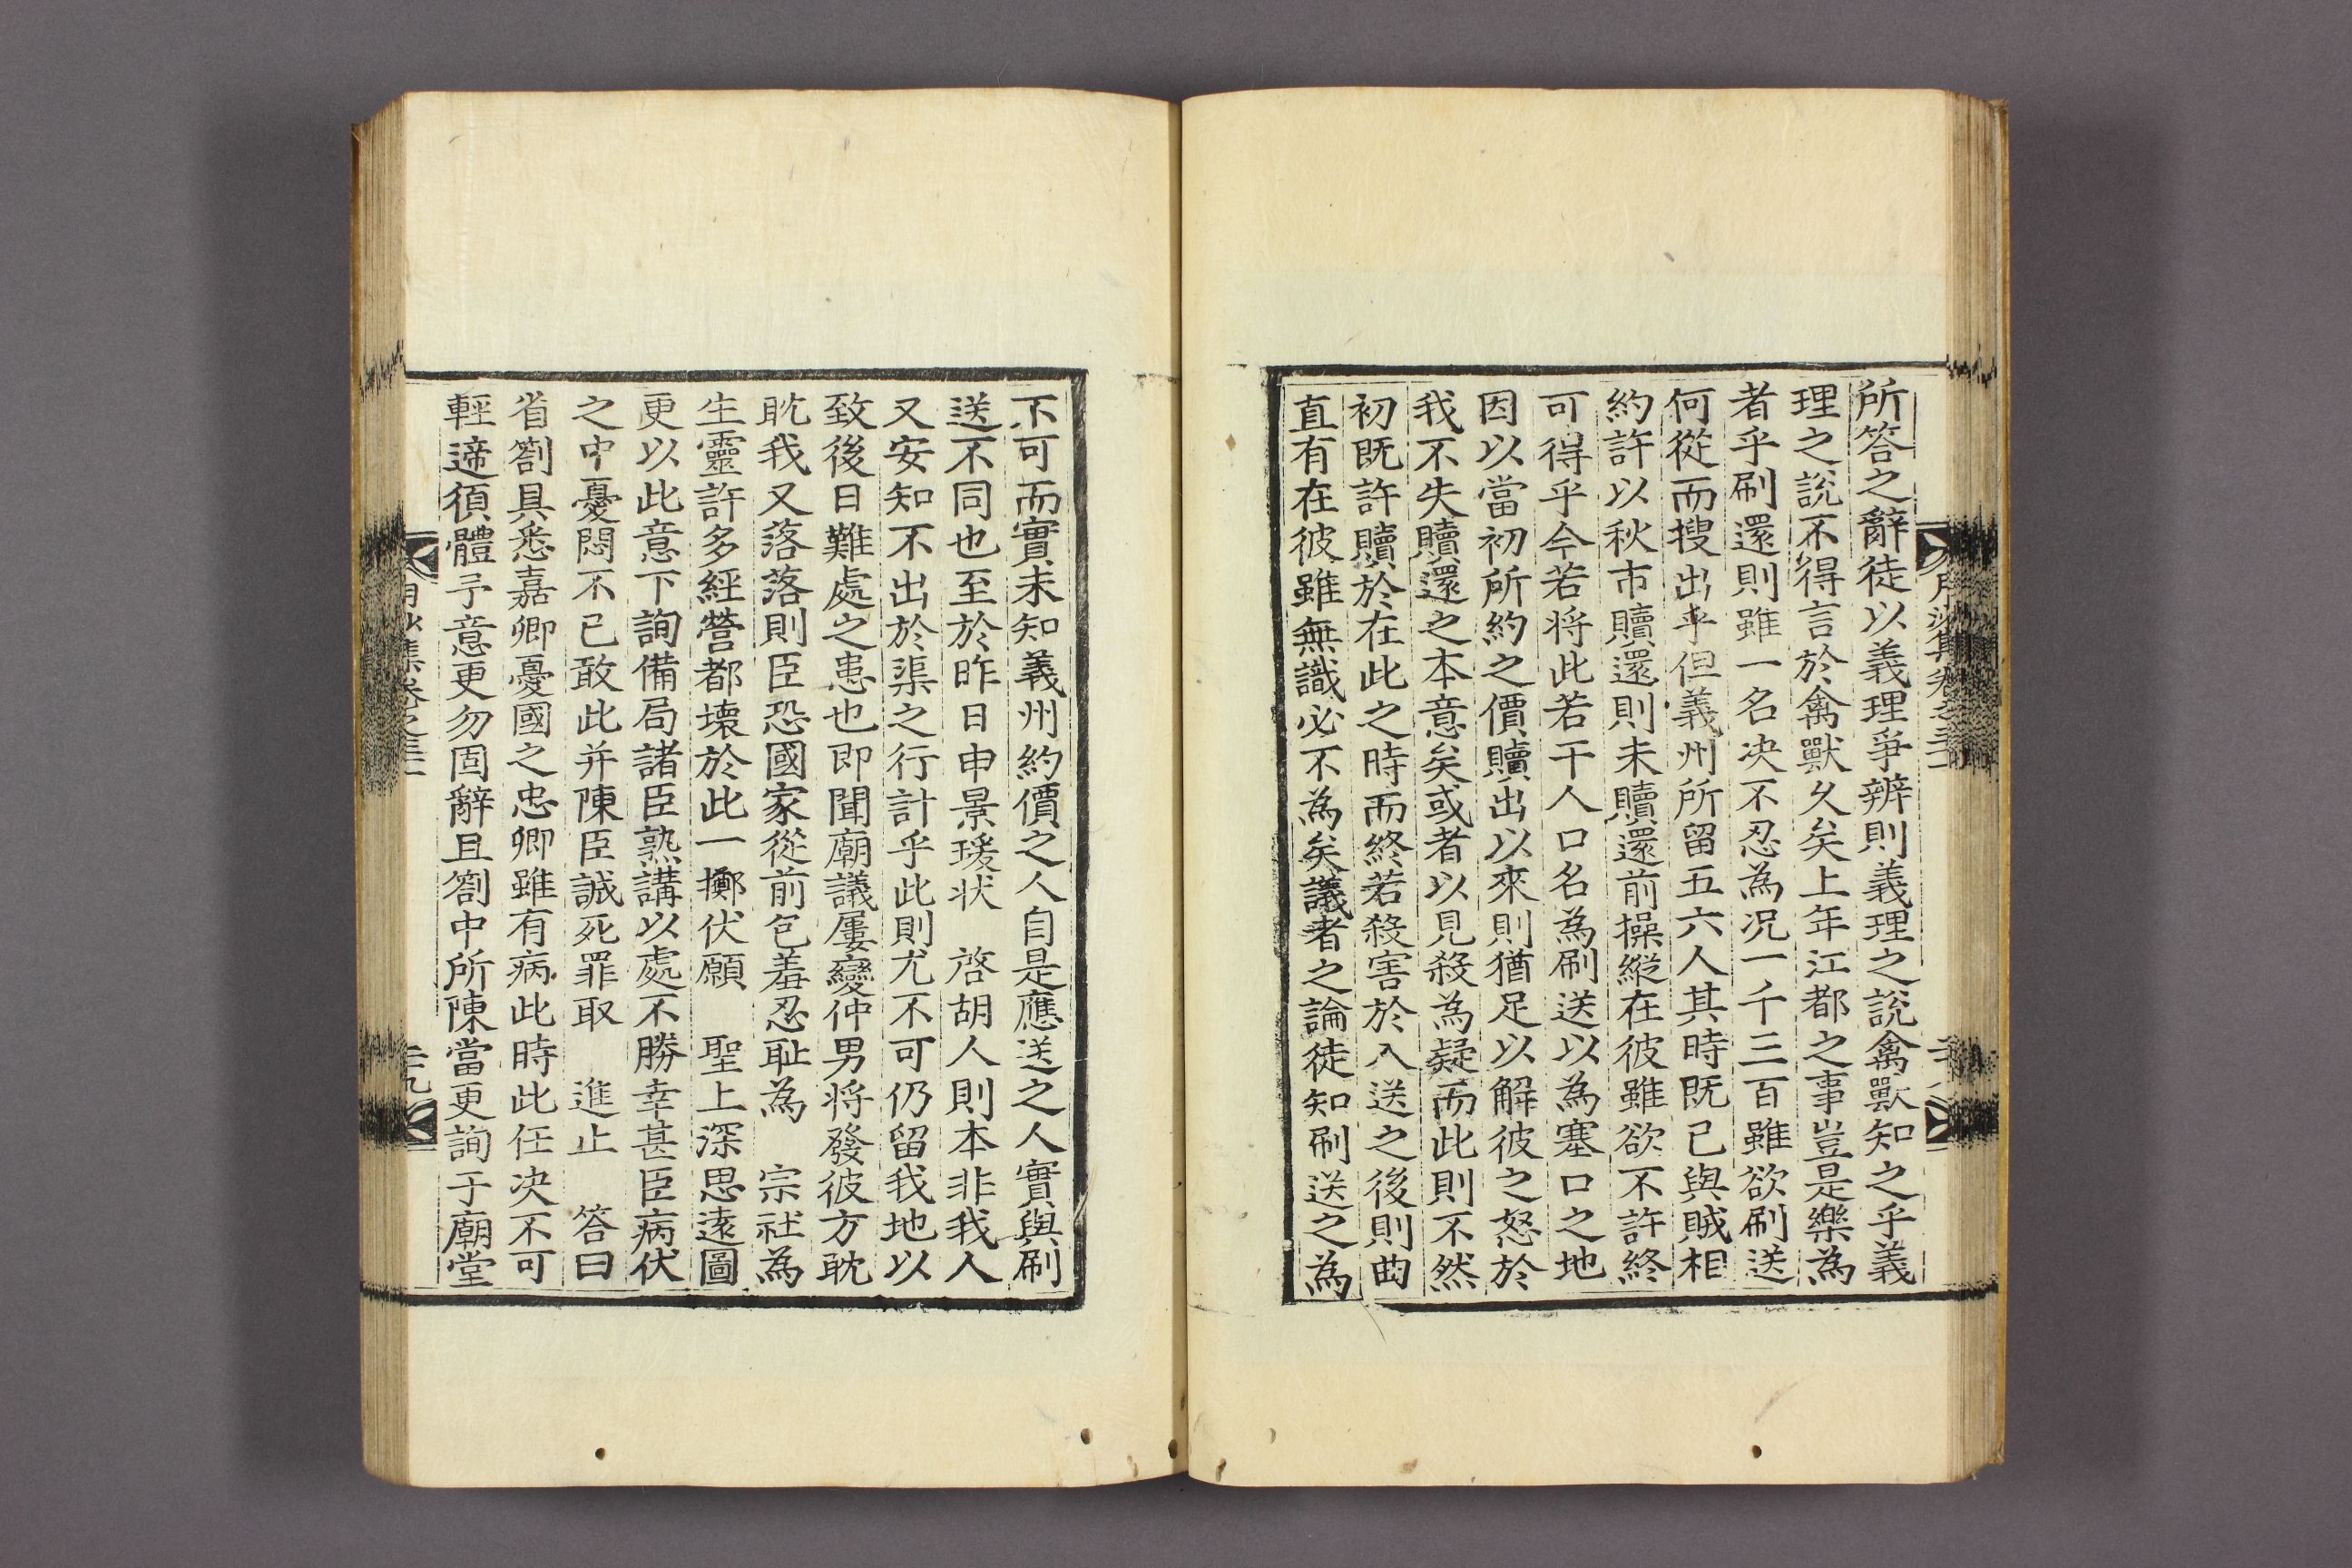 所答之辭徒以義理爭辨則義理之說禽獸知之乎義
理之說不得言於禽獸久矣上年江都之事豈是樂為
者乎刷還則雖一名决不忍為况一千三百雖欲刷送
何從而搜出乎但義州所留五六人其時既已與賊相
約許以秋市贖還則未贖還前操縱在彼雖欲不許終
可得乎今若将此若干人口名為刷送以為塞口之地
因以當初所約之價贖出以來則猶足以解彼之怒於
我不失贖還之本意矣或者以見殺為疑而此則不然
初既許贖於在此之時而終若殺害於入送之後則曲
直有在彼雖無識必不為矣議者之論徒知刷送之為
不可而實未知義州約價之人自是應送之人實與刷
送不同也至於昨日申景瑗状 啓胡人則本非我人
又安知不出於渠之行計乎此則尤不可仍留我地以
致後日難處之患也即聞廟議屢變仲男将發彼方耽
耽我又落落則臣恐國家從前包羞忍耻為 宗社為
生靈許多經營都壞於此一擲伏願 聖上深思遠圖
更以此意下詢備局諸臣熟講以處不勝幸甚臣病伏
之中憂悶不已敢此并陳臣誠死罪取 進止 答曰
省劄具悉嘉卿憂國之忠卿雖有病此時此任决不可
輕遞須體予意更勿固辭且劄中所陳當更詢于廟堂